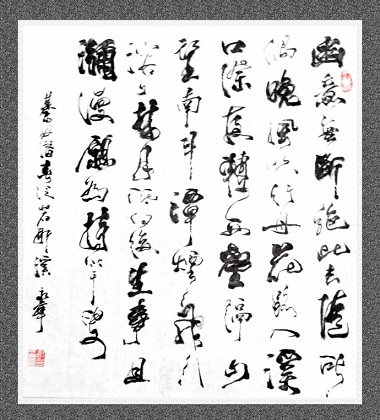 幽意無斷絕此去隨所
偶晚風吹行舟花路入溪
口際夜轉西壑隔山
望南斗潭煙飛
溶〻林月低向後生事且
瀰漫願為持竿叟
綦毋潛春泛若耶溪